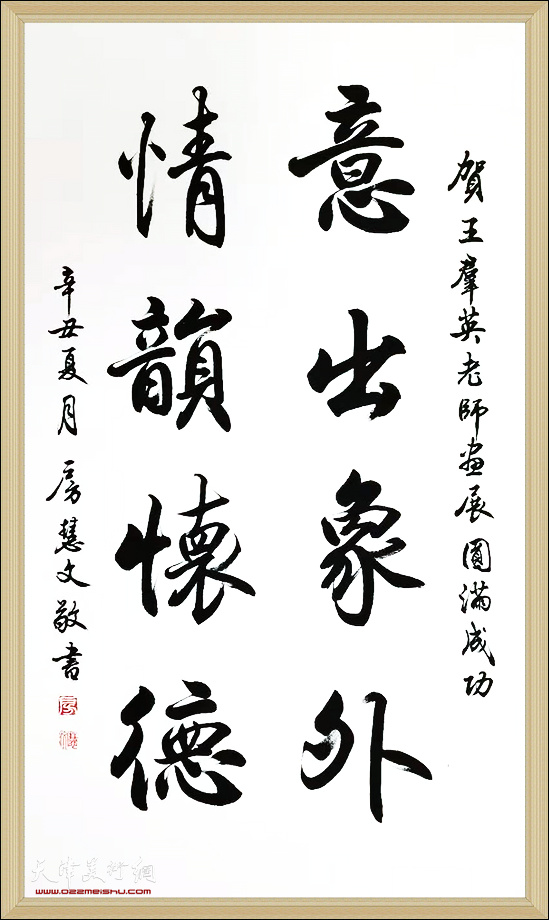 賀王羣英老師画展圓滿成功
意出象外
情韻懷德
辛丑夏月 房慧文敬書
房
天津美术网
www.022meishu.com